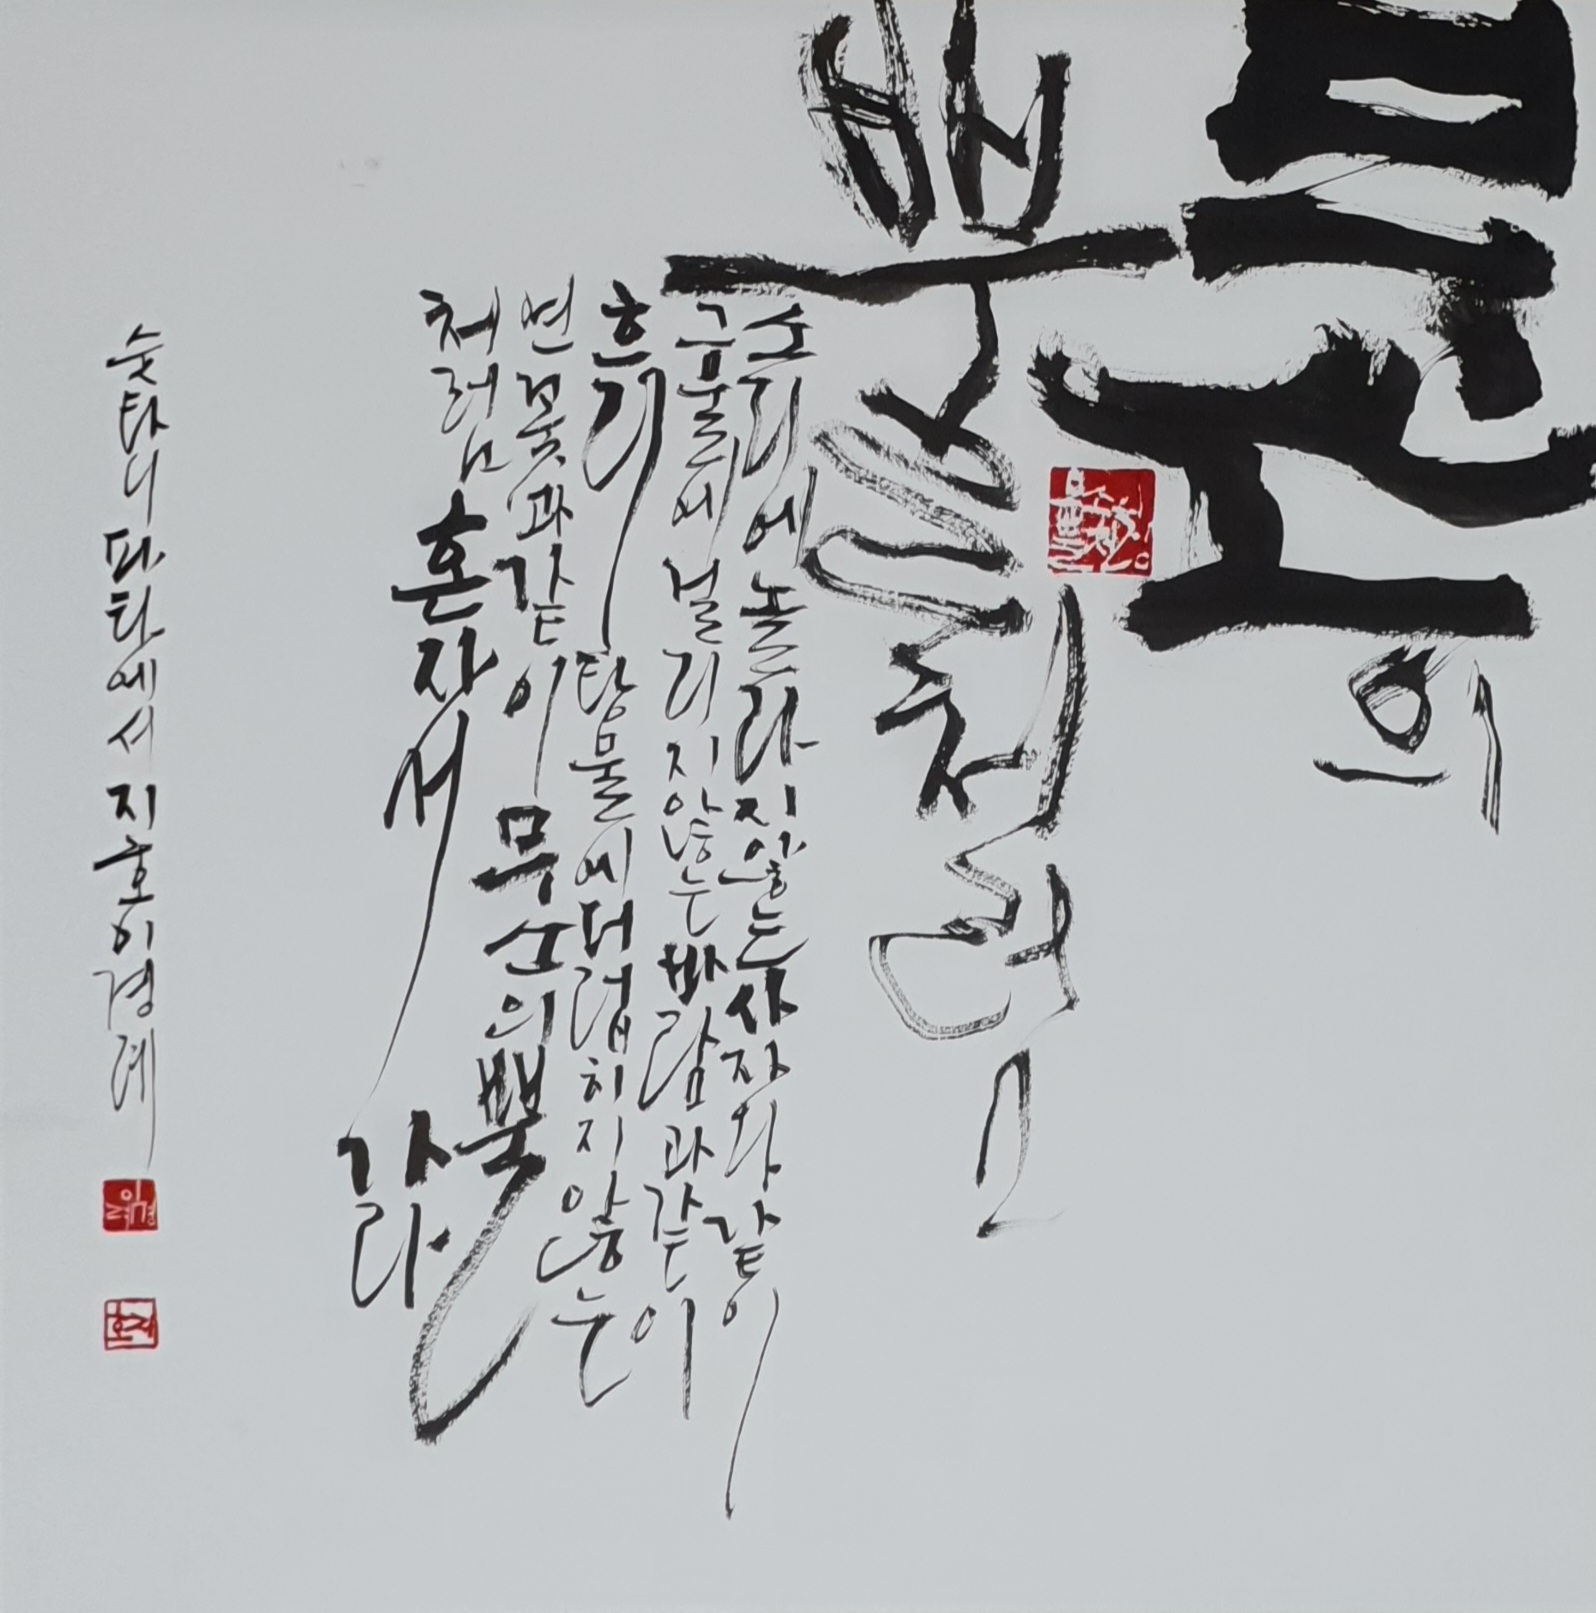 무소의
뿔처럼
소리에 놀라지 않는 사자와 같이
그물에 걸리지 않는 바람과 같이
흙탕물에 더럽히지 않는
연꽃과 같이 무소의 뿔
처럼 혼자서 가라
숫타니파타에서 지호 이경례